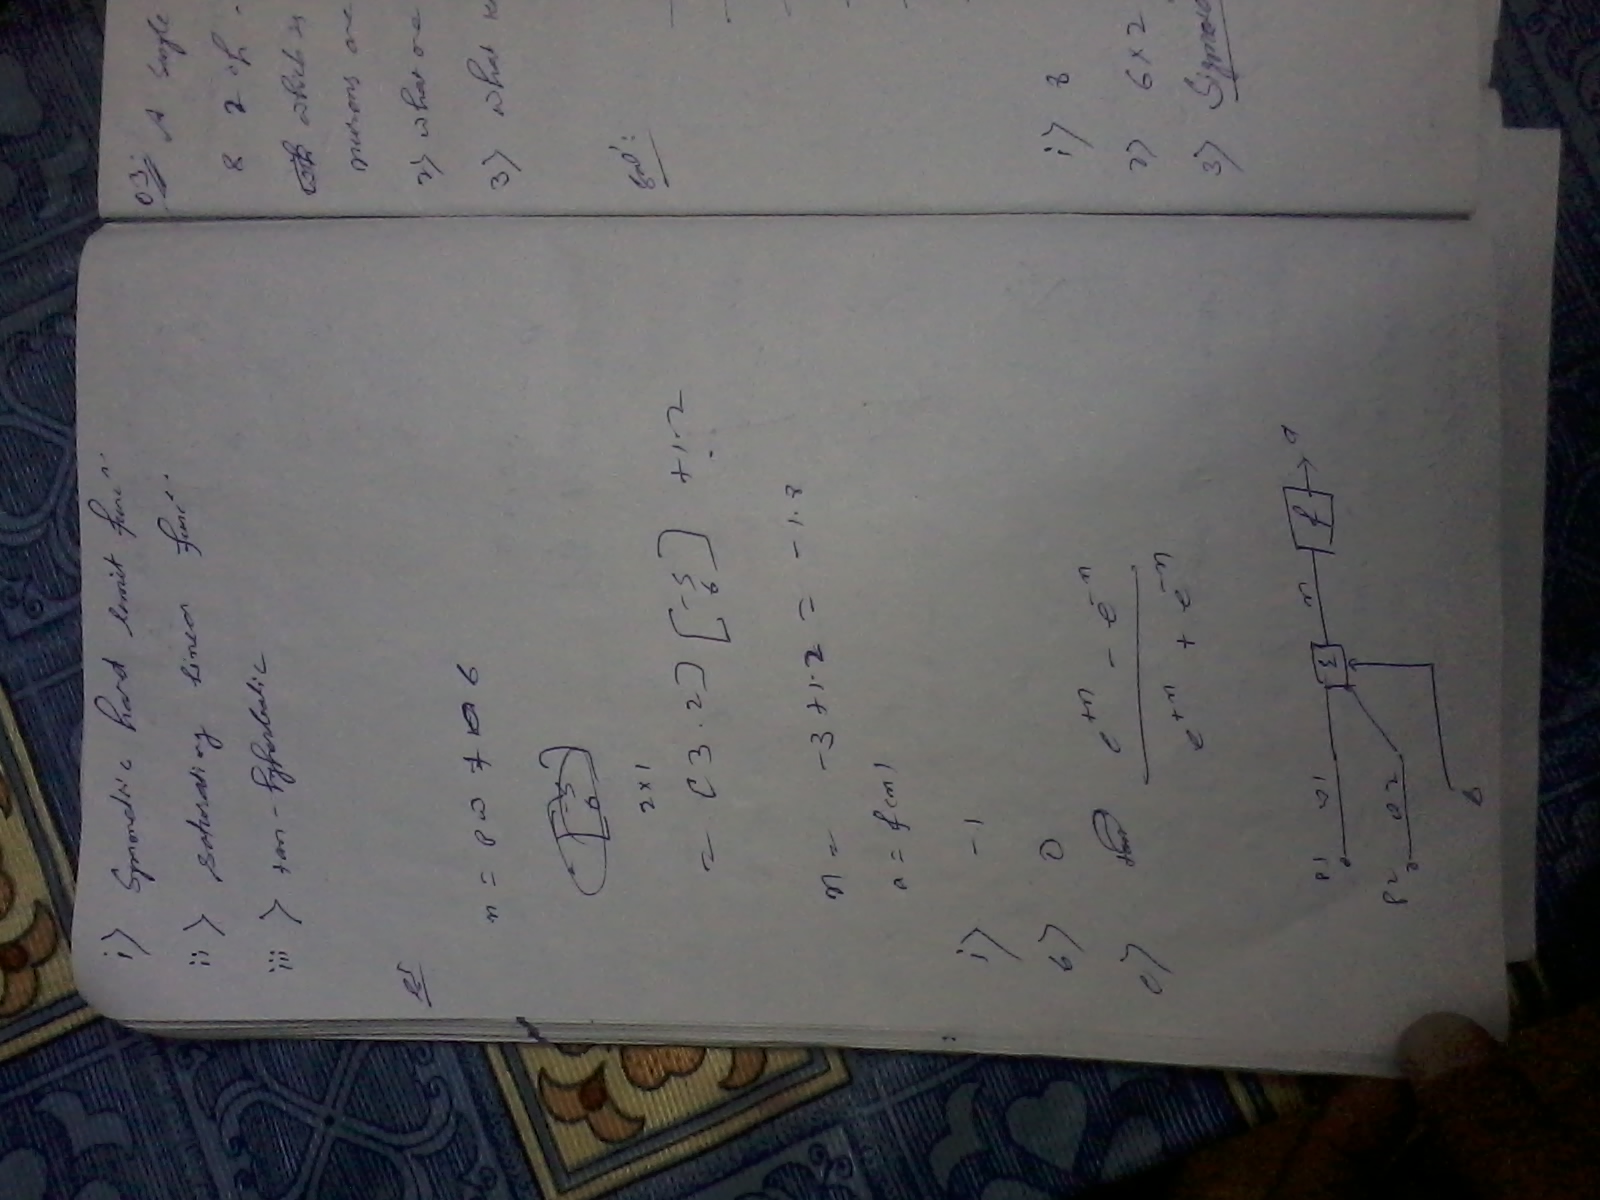 i) Symmetric hard limit func"
ii) saturating linear func"
iii) tan-hyperbolic
n = pw + b
2x1
= (3.2) [-5 6] + 1.2
n = -3 + 1.2 = -1.8
a = f(n)
i) -1
b) 0
c) e+n - e-n
e+n + e-n
P1 w1
Σ n f a
P2 w2
b
03: A single
& 2 o/p
which is
neurons are
2) what are
3) what
Sol":
i) 8
2) 6x2
3) Sigmoid